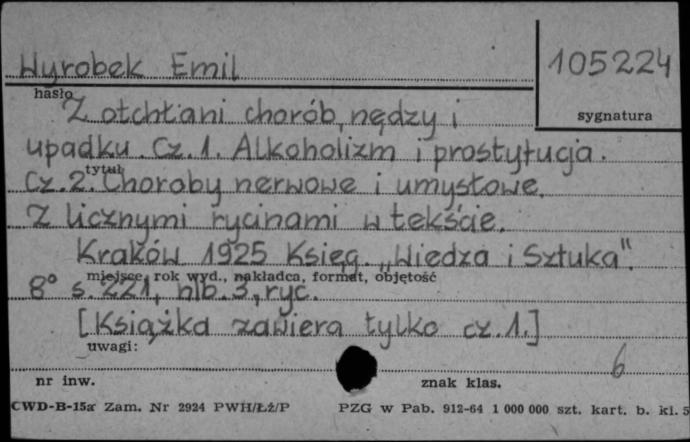 Wyrobek Emil
105224
hasło
sygnatura
Z otchłani chorób, nędzy i
upadku. Cz. 1. Alkoholizm i prostytucja.
tytuł
Cz. 2. Choroby nerwowe i umysłowe.
Z licznymi rycinami w tekście.
Kraków 1925 Księg. „Wiedza i Sztuka".
miejsce, rok wyd., nakładca, format, objętość
8° s. 221, nlb. 3, ryc.
[Książka zawiera tylko cz. 1.]
uwagi:
6
nr inw.
znak klas.
CWD-B-15a Zam. Nr 2924 PWH/Łź/P
PZG w Pab. 912-64 1 000 000 szt. kart. b. kl. 5